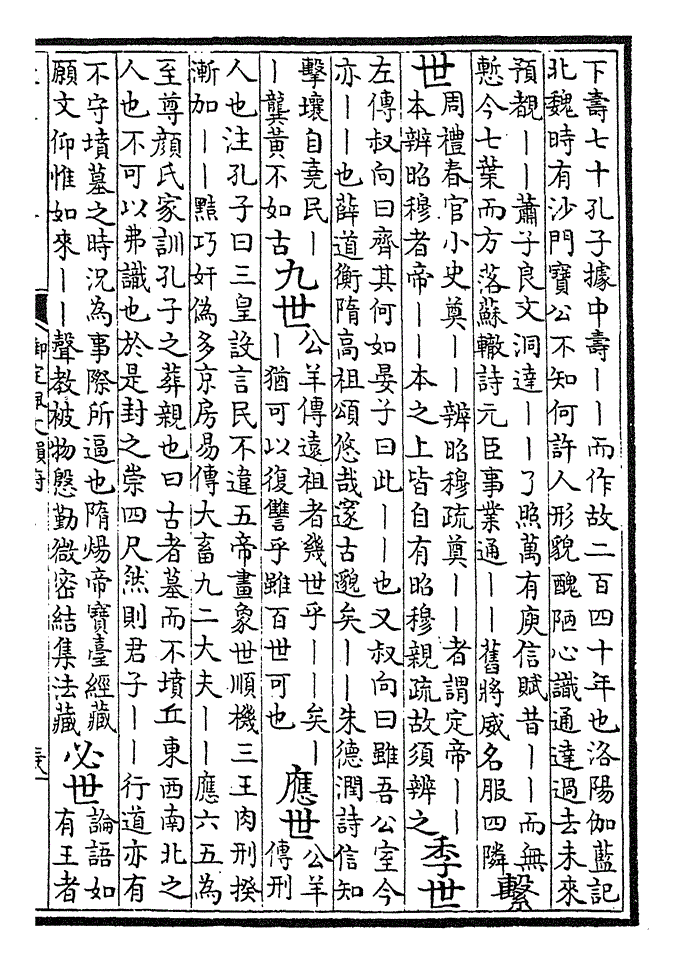 下壽七十孔子據中壽丨丨而作故二百四十年也洛陽伽藍記
北魏時有沙門寶公不知何許人形貌醜陋心識通達過去未來
預覩丨丨蕭子良文洞達丨丨了照萬有庾信賦昔丨丨而無
慙今七葉而方落蘇轍詩元臣事業通丨丨舊將威名服四隣
繫
世
周禮春官小史奠丨丨辨昭穆疏奠丨丨者謂定帝丨丨
本辨昭穆者帝丨丨本之上皆自有昭穆親疏故須辨之
季世
左傳叔向曰齊其何如晏子曰此丨丨也又叔向曰雖吾公室今
亦丨丨也薛道衡隋高祖頌悠哉邃古邈矣丨丨朱德潤詩信知
擊壤自堯民丨
丨龔黃不如古
九世
公羊傳遠祖者幾世乎丨丨矣丨
丨猶可以復讐乎雖百世可也
應世
公羊
傳刑
人也注孔子曰三皇設言民不違五帝畫象世順機三王肉刑揆
漸加丨丨黠巧奸偽多京房易傳大畜九二大夫丨丨應六五為
至尊顏氏家訓孔子之葬親也曰古者墓而不墳丘東西南北之
人也不可以弗識也於是封之崇四尺然則君子丨丨行道亦有
不守墳墓之時況為事際所逼也隋煬帝寶臺經藏
願文仰惟如來丨丨聲教被物慇勤微密結集法藏
必世
論語如
有王者